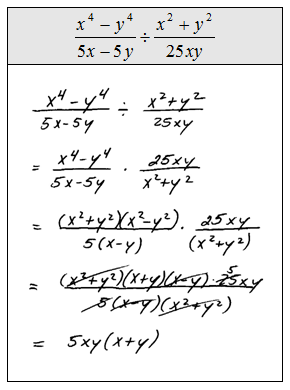 (x⁴ − y⁴)/(5x − 5y) ÷ (x² + y²)/(25xy)
(x⁴ − y⁴)/(5x − 5y) ÷ (x² + y²)/(25xy)
= (x⁴ − y⁴)/(5x − 5y) · (25xy)/(x² + y²)
= ((x² + y²)(x² − y²))/(5(x − y)) · (25xy)/((x² + y²))
= ((x² + y²)(x + y)(x − y) · 5 25xy)/(5(x − y)(x² + y²))
= 5xy(x + y)